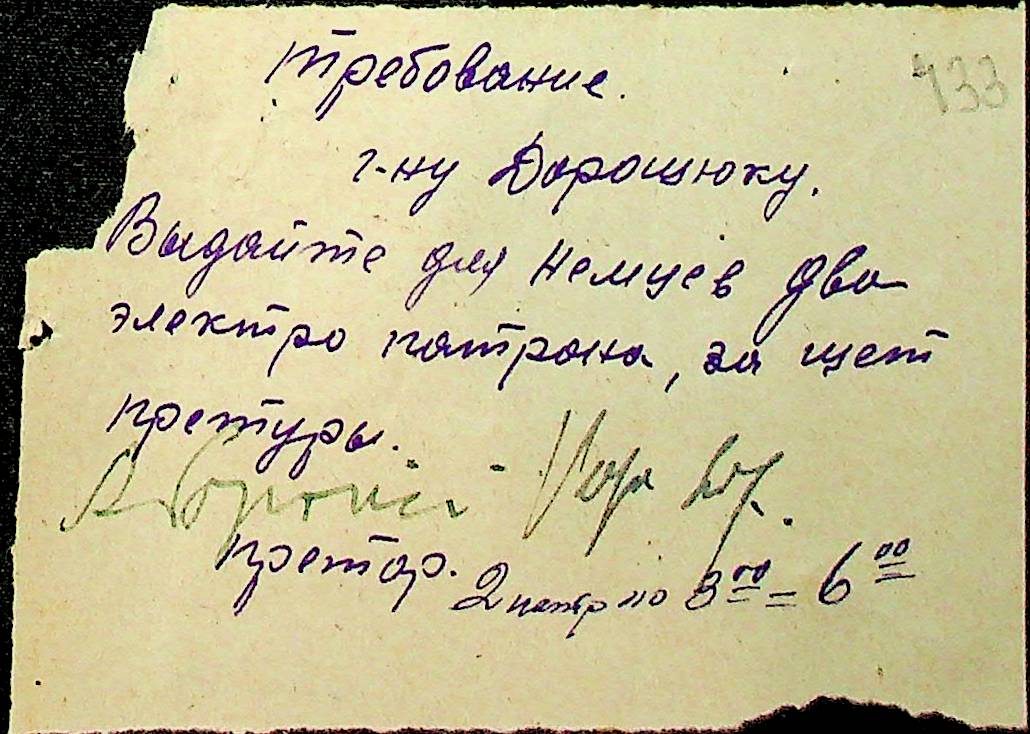 требование.
133
г-ну Дорошюку.
Выдайте для немцев два
электро патрона, за щет
претуры.
претор.
2 патр по 3 00 = 6 00